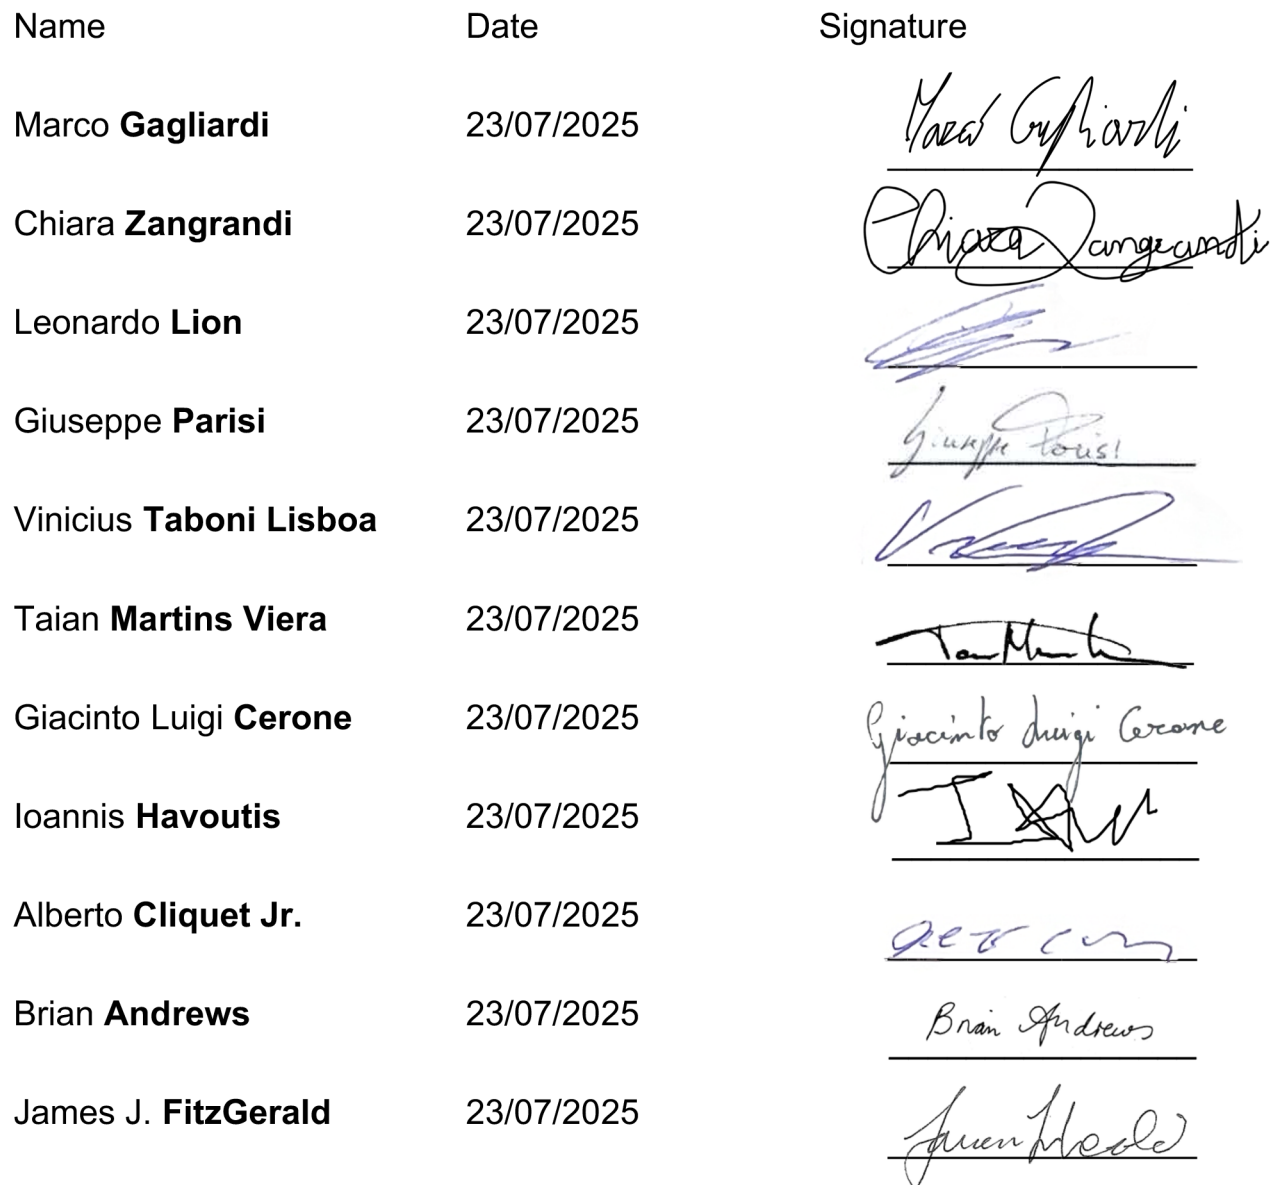 Name Date Signature
Marco Gagliardi 23/07/2025 Marco Gagliardi
Chiara Zangrandi 23/07/2025 Chiara Zangrandi
Leonardo Lion 23/07/2025
Giuseppe Parisi 23/07/2025 Giuseppe Parisi
Vinicius Taboni Lisboa 23/07/2025
Taian Martins Viera 23/07/2025
Giacinto Luigi Cerone 23/07/2025 Giacinto Luigi Cerone
Ioannis Havoutis 23/07/2025
Alberto Cliquet Jr. 23/07/2025
Brian Andrews 23/07/2025 Brian Andrews
James J. FitzGerald 23/07/2025